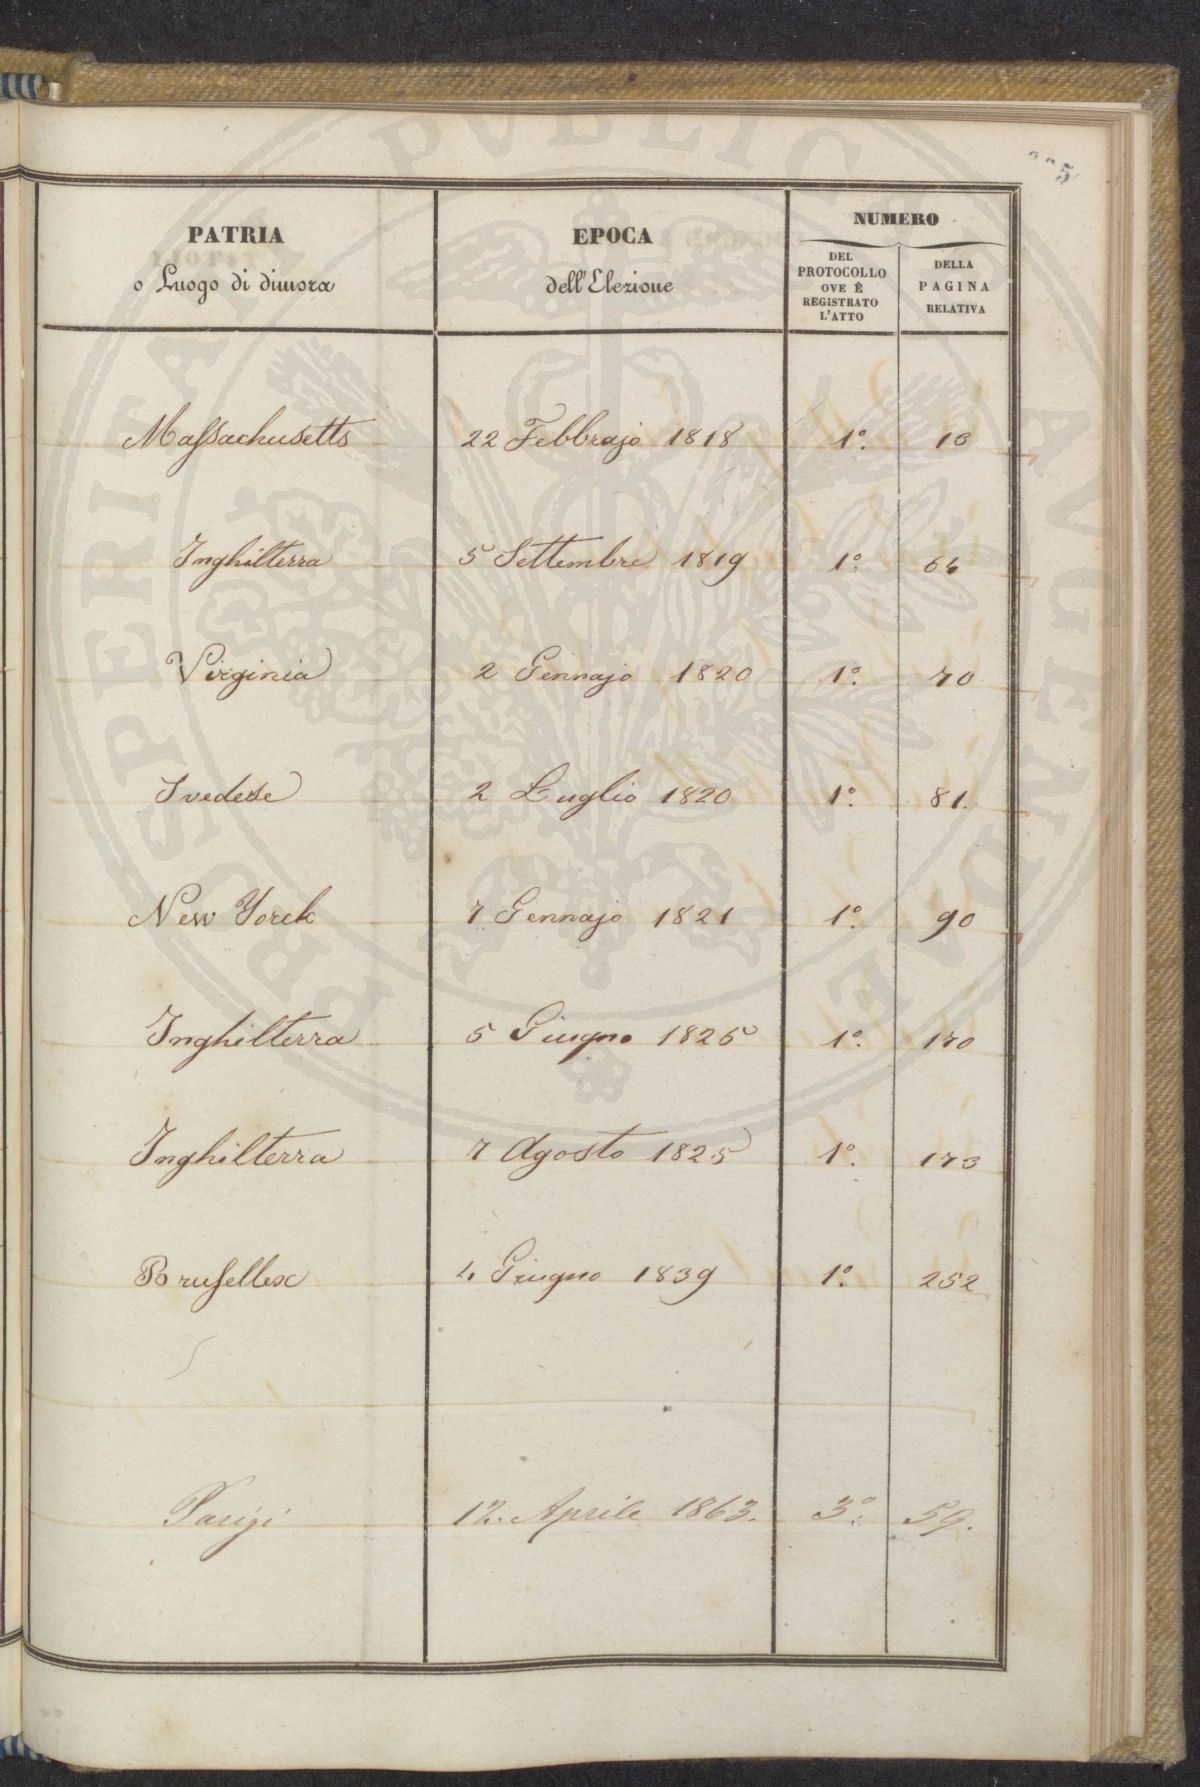 PROSPERITATI PVBLICAE AVGENDAE
5
PATRIA
o Luogo di dimora
EPOCA
dell'Elezione
NUMERO
DEL
PROTOCOLLO
OVE È
REGISTRATO
L'ATTO
DELLA
PAGINA
RELATIVA
Massachusetts 22 Febbrajo 1818 1°. 13
Inghilterra 5 Settembre 1819 1°. 64
Virginia 2 Gennajo 1820 1°. 70
Svedese 2 Luglio 1820 1°. 81.
New Yorck 7 Gennajo 1821 1°. 90
Inghilterra 5 Giugno 1825 1°. 170
Inghilterra 7 Agosto 1825 1°. 173
Brusellex 4 Giugno 1839 1°. 252
Parigi 12. Aprile 1863. 3°. 59.